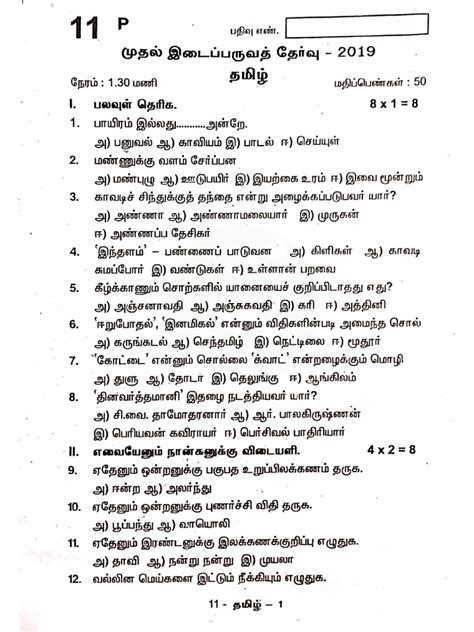 11 P
பதிவு எண்.
முதல் இடைப்பருவத் தேர்வு - 2019
தமிழ்
நேரம் : 1.30 மணி மதிப்பெண்கள் : 50
I. பலவுள் தெரிக. 8 x 1 = 8
1. பாயிரம் இல்லது...........அன்றே.
அ) பனுவல் ஆ) காவியம் இ) பாடல் ஈ) செய்யுள்
2. மண்ணுக்கு வளம் சேர்ப்பன
அ) மண்புழு ஆ) ஊடுபயிர் இ) இயற்கை உரம் ஈ) இவை மூன்றும்
3. காவடிச் சிந்துக்குத் தந்தை என்று அழைக்கப்படுபவர் யார்?
அ) அண்ணா ஆ) அண்ணாமலையார் இ) முருகன்
ஈ) அண்ணப்ப தேசிகர்
4. 'இந்தளம்' – பண்ணைப் பாடுவன அ) கிளிகள் ஆ) காவடி
சுமப்போர் இ) வண்டுகள் ஈ) உள்ளான் பறவை
5. கீழ்க்காணும் சொற்களில் யானையைக் குறிப்பிடாதது எது?
அ) அஞ்சனாவதி ஆ) அஞ்சுகவதி இ) கரி ஈ) அத்தினி
6. 'ஈறுபோதல்', 'இனமிகல்' என்னும் விதிகளின்படி அமைந்த சொல்
அ) கருங்கடல் ஆ) செந்தமிழ் இ) நெட்டிலை ஈ) மூதூர்
7. 'கோட்டை' என்னும் சொல்லை 'க்வாட்' என்றழைக்கும் மொழி
அ) துளு ஆ) தோடா இ) தெலுங்கு ஈ) ஆங்கிலம்
8. 'தினவர்த்தமானி' இதழை நடத்தியவர் யார்?
அ) சி.வை. தாமோதரனார் ஆ) ஆர். பாலகிருஷ்ணன்
இ) பெரியவன் கவிராயர் ஈ) பெர்சிவல் பாதிரியார்
II. எவையேனும் நான்கனுக்கு விடையளி. 4 x 2 = 8
9. ஏதேனும் ஒன்றனுக்கு பகுபத உறுப்பிலக்கணம் தருக.
அ) ஈன்ற ஆ) அலர்ந்து
10. ஏதேனும் ஒன்றனுக்கு புணர்ச்சி விதி தருக.
அ) பூப்பந்து ஆ) வாயொலி
11. ஏதேனும் இரண்டனுக்கு இலக்கணக்குறிப்பு எழுதுக.
அ) தாவி ஆ) நன்று நன்று இ) முயலா
12. வல்லின மெய்களை இட்டும் நீக்கியும் எழுதுக.
11 - தமிழ் – 1